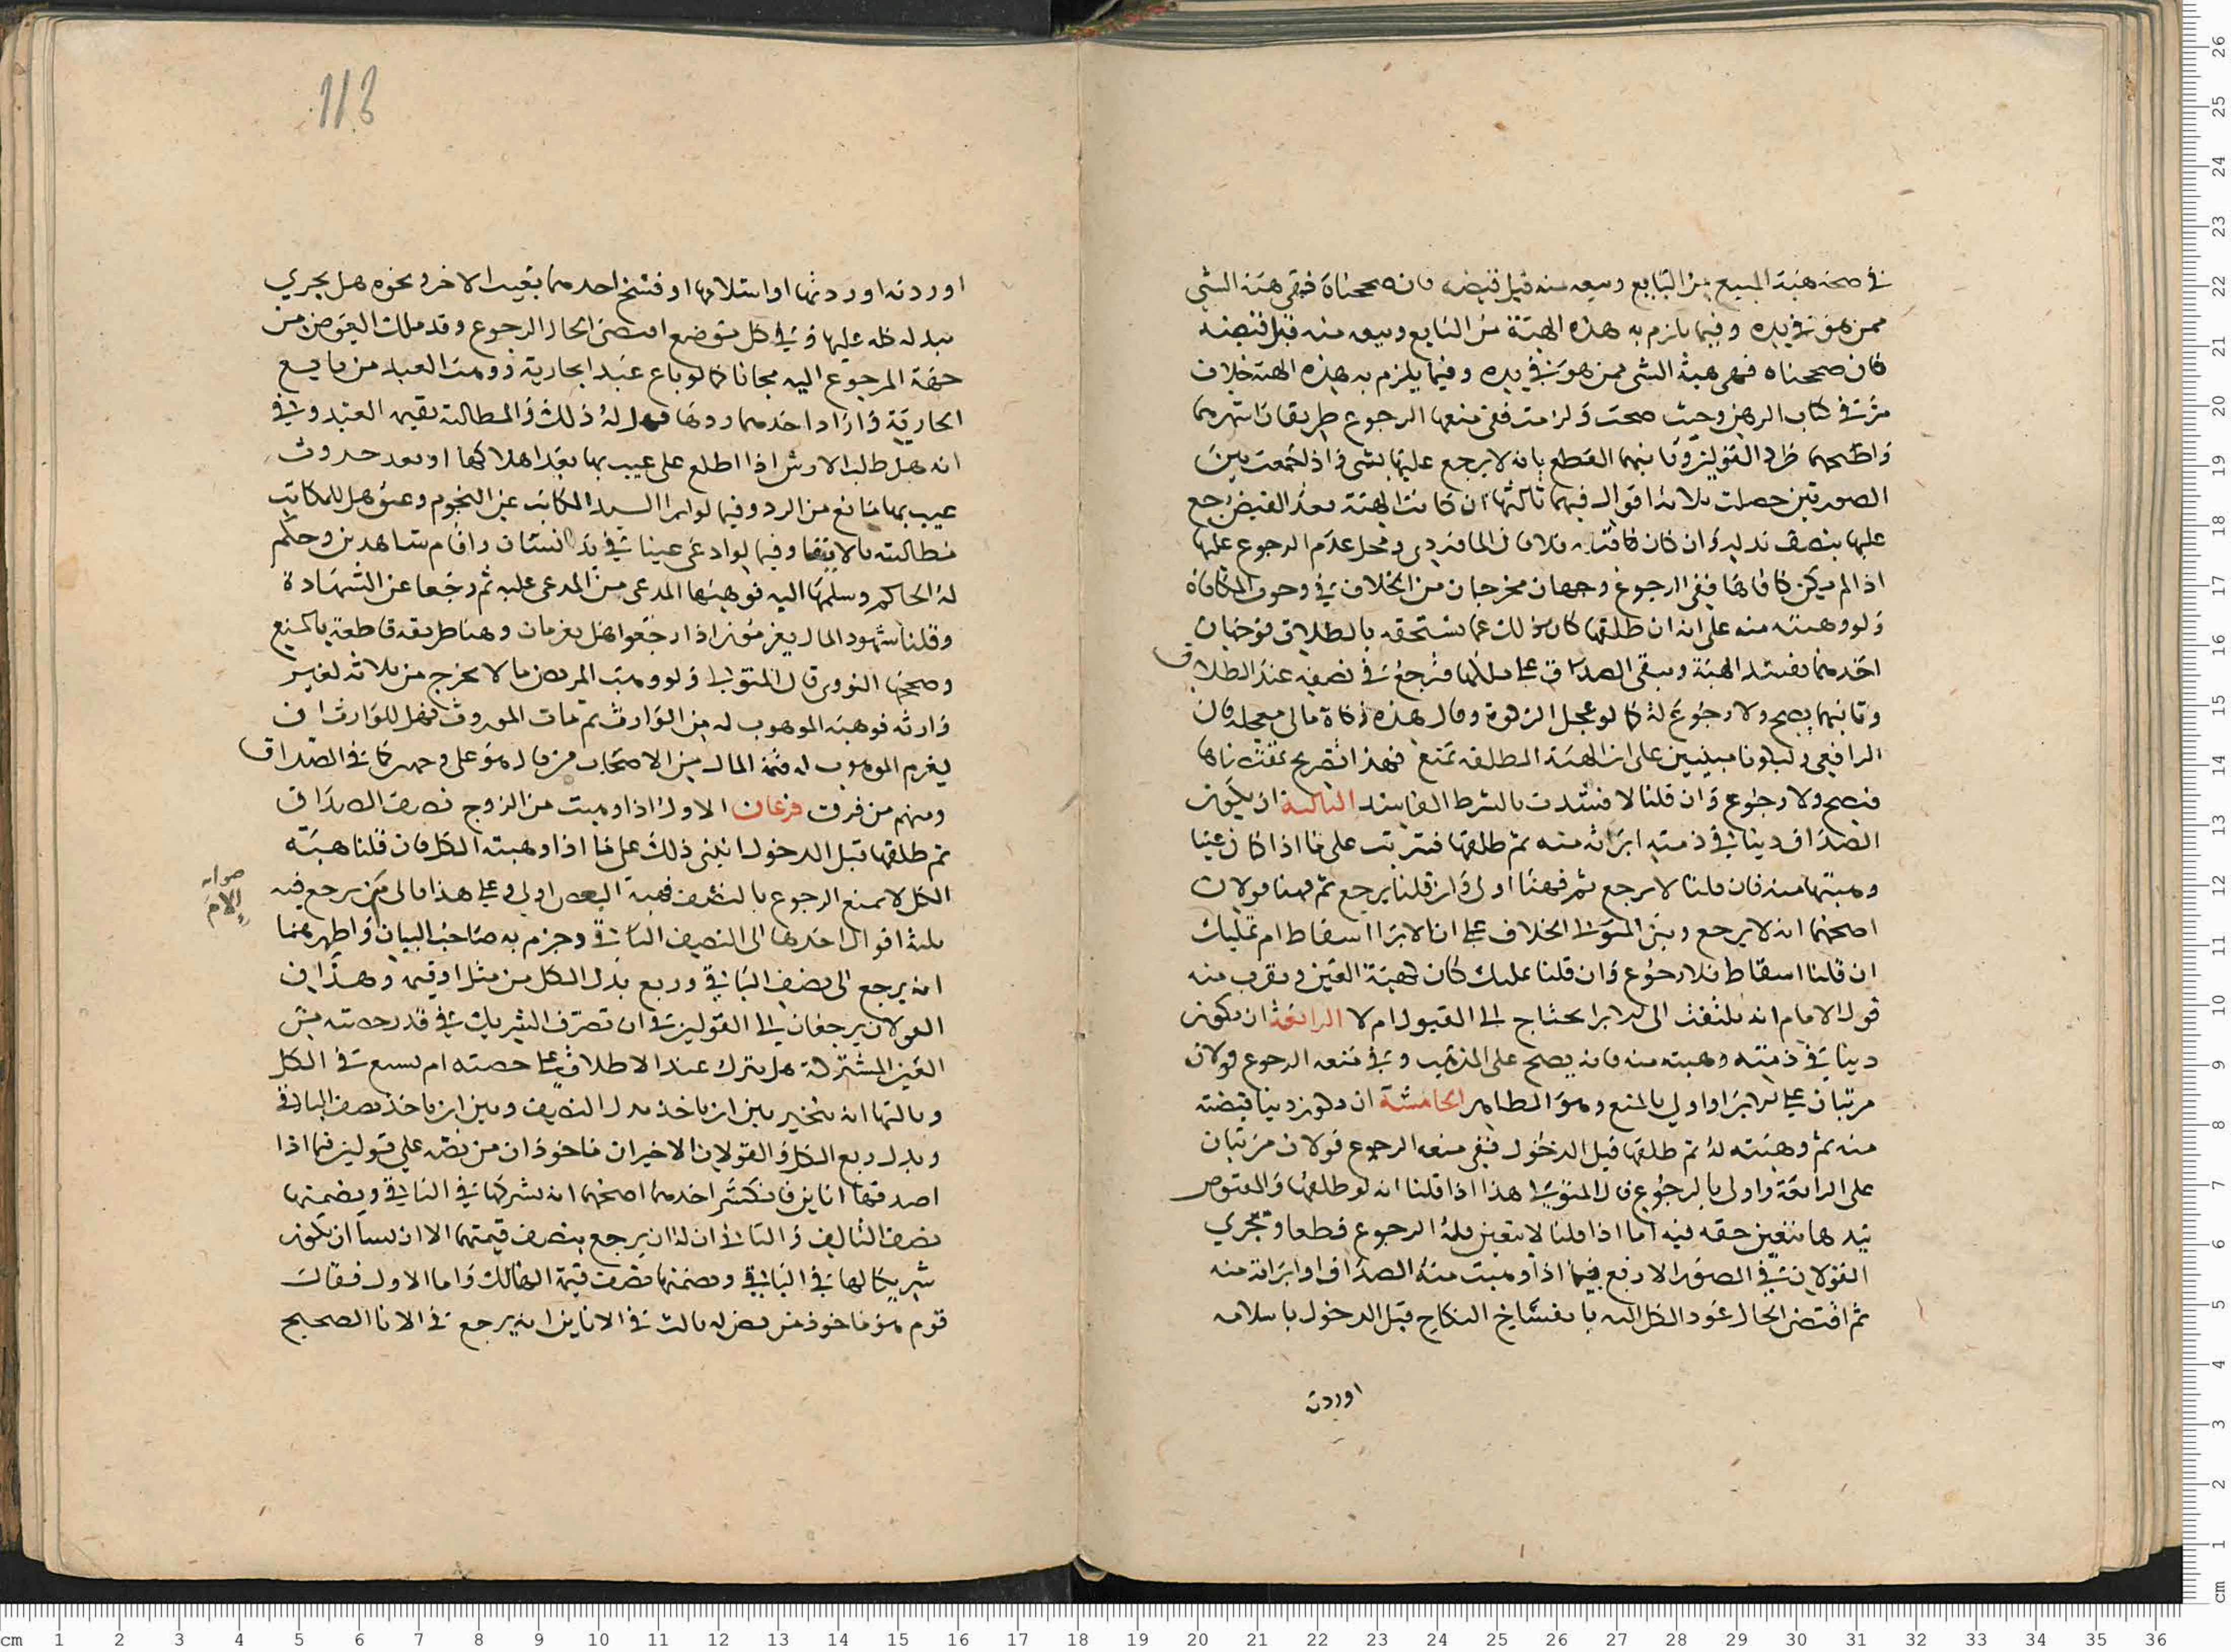 في صحة هبة المبيع من البايع وبيعه منه قبل قبضه فان صححناه فهي هبة الشي
ممن هو في يده وفيما يلزم به هذه الهبة من البايع وبيعه منه قبل قبضه
فان صححناه فهي هبة الشي ممن هو في يده وفيما يلزم به هذه الهبة خلاف
مر في كتاب الرهن وحيث صحت ولزمت ففي منعها الرجوع طريقان اشهرهما
واصحهما طرد القولين وثانيهما القطع بانه لا يرجع عليها بشي واذا جمعت بين
الصورتين حصلت ثلاثة اقوال فيهما ثالثها ان كانت الهبة بعد القبض رجع
عليها بنصف بدله وان كان قبله فلا قال الماوردي ومحل عدم الرجوع عليها
اذا لم يكن كافاها ففي الرجوع وجهان مخرجان من الخلاف في وجوب المكافاة
ولو وهبته منه على انه ان طلقها كان ذلك عما يستحقه بالطلاق فوجهان
احدهما تفسد الهبة ويبقى الصداق على ملكها فيرجع في نصفه عند الطلاق
وثانيهما يصح ولا رجوع له كما لو عجل الزكوة وقال هذه زكاة مالي معجلة قال
الرافعي وليكونا مبنيين على ان الهبة المطلقة تمنع فهذا تصريح بمقتضاها
فيصح ولا رجوع وان قلنا لا فسدت بالشرط الفاسد الثالثة ان يكون
الصداق دينا في ذمته ابراته منه ثم طلقها فترتب على ما اذا كان عينا
وهبتها منه فان قلنا لا يرجع ثم فهنا اولى وان قلنا يرجع ثم فهنا قولان
اصحهما انه لا يرجع وبنى المتولي الخلاف على ان الابرا اسقاط ام تمليك
ان قلنا اسقاط فلا رجوع وان قلنا تمليك كان كهبة العين ويقرب منه
قول الامام انه يلتفت الى ان الابرا يحتاج الى القبول ام لا الرابعة ان يكون
دينا في ذمته وهبته منه فانه يصح على المذهب وفي منعه الرجوع قولان
مرتبان على الابرا واولى بالمنع وهو الظاهر الخامسة ان يكون دينا قبضته
منه ثم وهبته له ثم طلقها قبل الدخول ففي منعه الرجوع قولان مرتبان
على الرابعة واولى بالرجوع قال المتولي هذا اذا قلنا انه لو طلقها والمقبوض
بيدها يتعين حقه فيه اما اذا قلنا لا يتعين فله الرجوع قطعا وتجري
القولان في الصور الاربع فيما اذا وهبت منه الصداق او ابراته منه
ثم اقتضى الحال عود الكل اليه بانفساخ النكاح قبل الدخول باسلامه
اوردته
118
او ردته او ردتها او اسلامها او فسخ احدهما بعيب الاخر ونحوه هل يجري
ببدله عليها وفي كل موضع اقتضى الحال الرجوع وقد ملك العوض من
جهة المرجوع اليه مجانا كما لو باع عبدا بجارية ووهب العبد من بايع
الجارية واراد احدهما ردها فهل له ذلك والمطالبة بقيمة العبد وفي
انه هل طلب الارش اذا اطلع على عيب بها بعد اهلاكها او بعد حدوث
عيب بها مانع من الرد وفيما لو ابرا السيد المكاتب عن النجوم وعتق هل للمكاتب
مطالبته بالايتا وفيما لو ادعى عينا في يد انسان واقام شاهدين وحكم
له الحاكم وسلمها اليه فوهبها المدعي من المدعى عليه ثم رجعا عن الشهادة
وقلنا شهود المال يغرمون اذا رجعوا هل يغرمان وهنا طريقة قاطعة بالمنع
وصححها النووي قال المتولي ولو وهب المريض مالا يخرج من ثلاثة لغير
وارثه فوهبه الموهوب له من الوارث ثم مات الموروث فهل للوارث ان
يغرم الموهوب له قيمة المال من الاصحاب من قال هو على وجهين كما في الصداق
ومنهم من فرق فرعان الاول اذا وهبت من الزوج نصف الصداق
ثم طلقها قبل الدخول انبنى ذلك على ما اذا وهبته الكل فان قلنا هبة
الكل لا تمنع الرجوع بالنصف فهبة البعض اولى وعلى هذا فالى من يرجع فيه
ثلثة اقوال احدها الى النصف الباقي وجزم به صاحب البيان واظهرهما
انه يرجع الى نصف الباقي وربع بدل الكل من مثل او قيمة وهذان
القولان يرجعان الى القولين في ان تصرف الشريك في قدر حصته من
العين المشتركة هل ينزل عند الاطلاق على حصته ام يشيع في الكل
وثالثها انه يتخير بين ان ياخذ بدل النصف وبين ان ياخذ نصف الباقي
وبدل ربع الكل والقولان الاخيران ماخوذان من نصه على قولين فيما اذا
اصدقها انايين فانكسر احدهما اصحهما انه يشركها في الباقي ويضمنها
نصف التالف والثاني ان له ان يرجع بنصف قيمتهما الا ان يشا ان يكون
شريكا لها في الباقي ويضمنها نصف قيمة الهالك واما الاول فقال
قوم هو ماخوذ من نص له ثالث في الانايين انه يرجع في الانا الصحيح
صوابه
الام